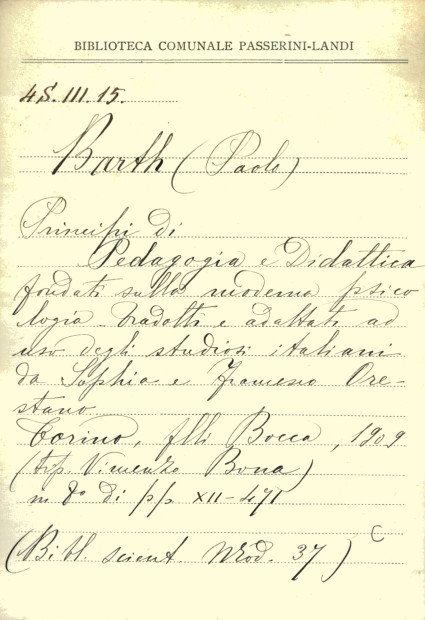 BIBLIOTECA COMUNALE PASSERINI-LANDI
4S.III.15.
Barth (Paolo)
Principi di
Pedagogia e Didattica
fondati sulla moderna psico
logia. Tradotti e adattati ad
uso degli studiosi italiani
da Sophia e Francesco Ore-
stano
Torino, flli Bocca, 1909
(tip. Vincenzo Bona)
in 8º di pp XII-471
C
(Bibl. scient. Mod. 37)